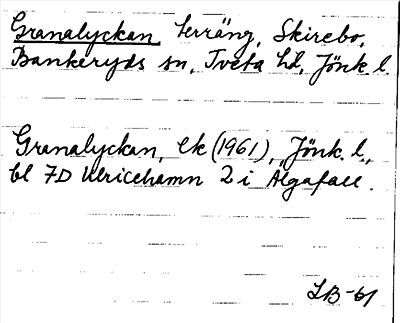 Granalyckan Terräng, Skirebo,
Bankeryds sn, Tveta hd, Jönk. l.
Granalyckan, ek (1961), Jönk. l.,
bl 7D Ulricehamn 2 i Älgafall.
LB-61